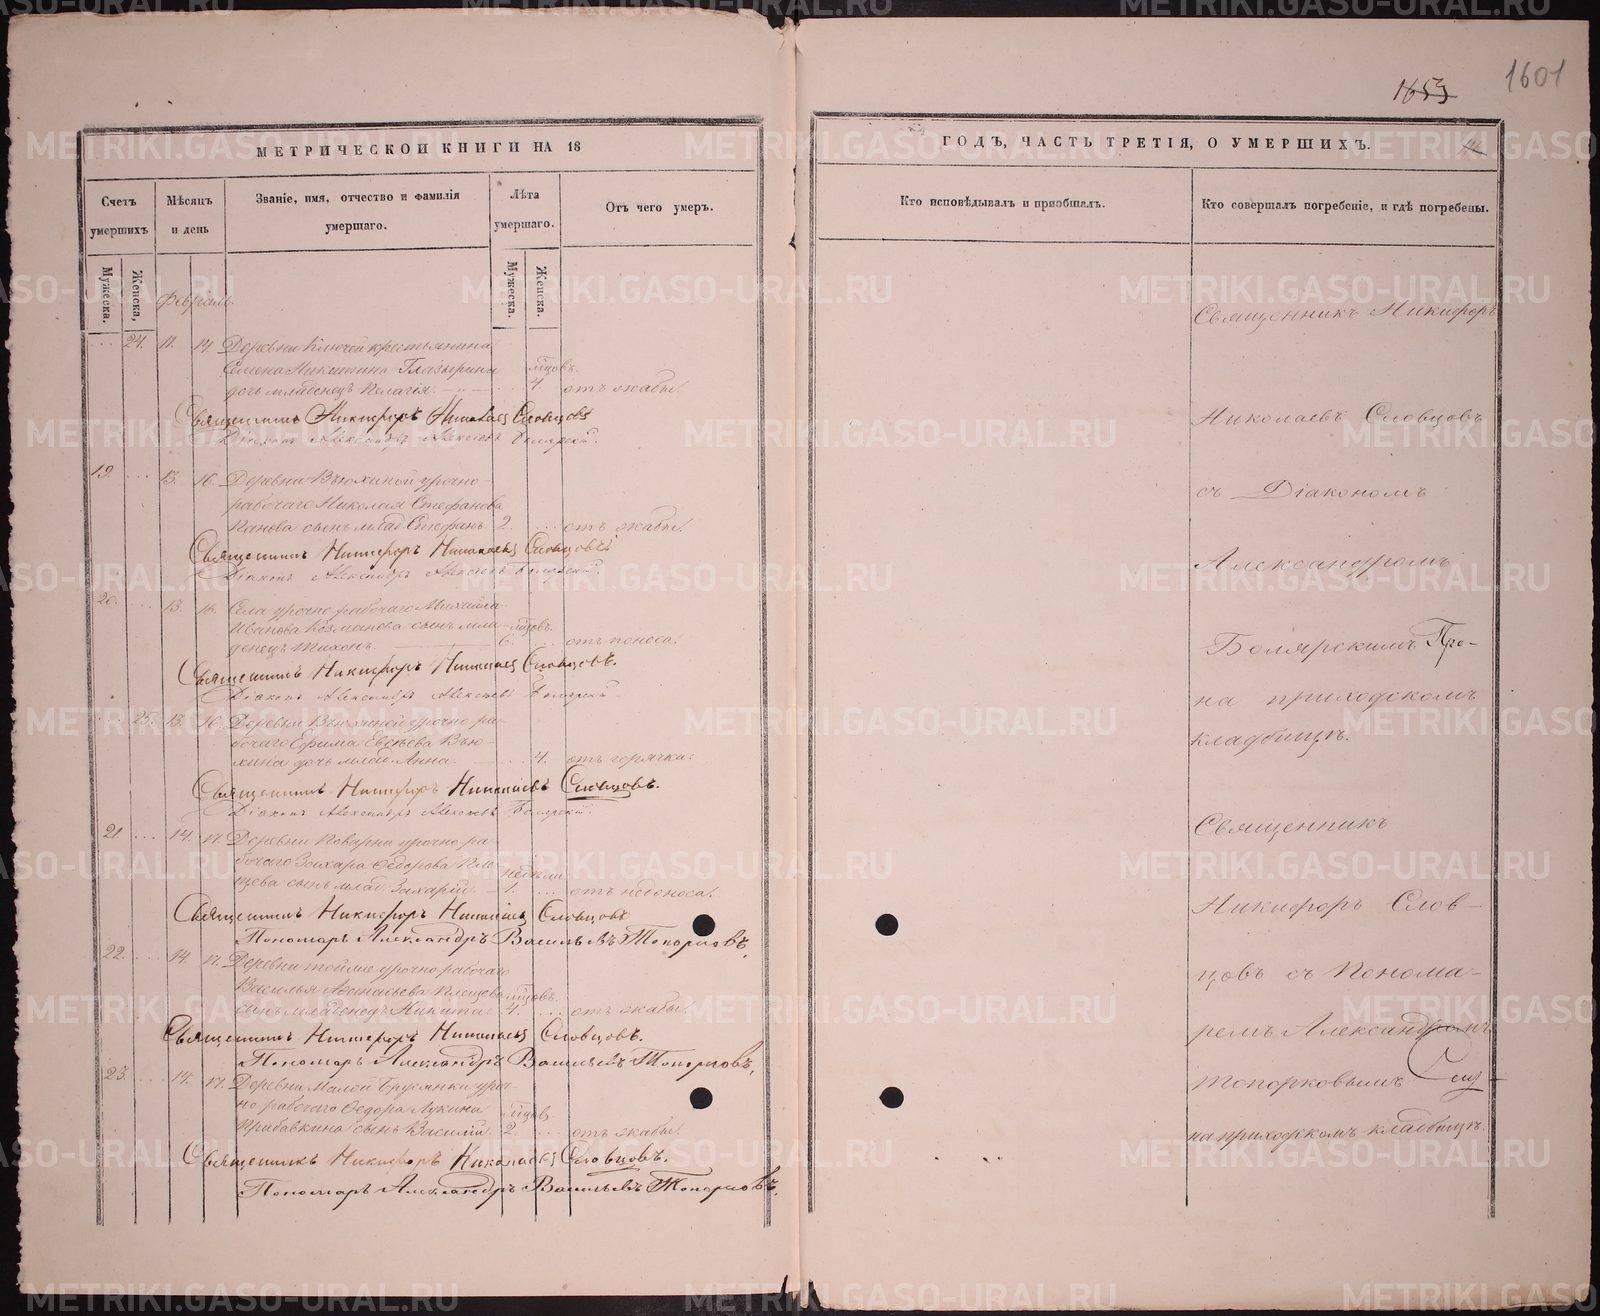 МЕТРИЧЕСКОЙ КНИГИ НА 18
Счетъ умершихъ
Мѣсяцъ и день
Званіе, имя, отчество и фамилія умершаго.
Лѣта умершаго.
Отъ чего умеръ.
Мужеска.
Женска,
Мужеска.
Женска.
Февраль
24. 11. 14. Деревни Ключей крестьянина
Семена Никитина Глазырина мѣсцовъ
дочь младенецъ Пелагія 4. отъ жабы.
Священникъ Никифоръ Николаевъ Словцовъ
Діаконъ Александръ Алексѣевъ Болярскій.
19. 13. 16. Деревни Вьюхиной урочно-
рабочаго Николая Стефанова
Панова сынъ млад. Стефанъ 2. отъ жабы.
Священникъ Никифоръ Николаевъ Словцовъ
Діаконъ Александръ Алексѣевъ Болярскій.
20. 13. 16. Села урочно рабочаго Михаила
Иванова Козманова сынъ мла- мѣсцовъ.
денецъ Тихонъ 6. отъ поноса.
Священникъ Никифоръ Николаевъ Словцовъ.
Діаконъ Александръ Алексѣевъ Болярскій.
25. 13. 16. Деревни Вьюхиной урочно ра-
бочаго Ефима Евсѣева Вью-
хина дочь млад. Анна. 4. отъ горячки.
Священникъ Никифоръ Николаевъ Словцовъ.
Діаконъ Александръ Алексѣевъ Болярскій.
21 14. 17. Деревни Поварни урочно ра-
бочаго Захара Ѳедорова Пле- недѣли
щева сынъ млад. Захарій. 1. отъ недоноса.
Священникъ Никифоръ Николаевъ Словцовъ
Пономарь Александръ Васильевъ Топорковъ,
22. 14. 17. Деревни тойже урочно рабочаго
Василья Аѳанасьева Плещева мѣсцовъ.
сынъ младенецъ Никита 4. отъ жабы.
Священникъ Никифоръ Николаевъ Словцовъ.
Пономарь Александръ Васильевъ Топорковъ,
23. 14. 17. Деревни Малой Брусянки уроч-
но рабочаго Ѳедора Лукина мѣсцов.
Прибавкина сынъ Василій. 2. отъ жабы.
Священникъ Никифоръ Николаевъ Словцовъ.
Пономарь Александръ Васильевъ Топорковъ.
1653
1601
ГОДЪ, ЧАСТЬ ТРЕТІЯ, О УМЕРШИХЪ.
Кто исповѣдывалъ и пріобщалъ.
Кто совершалъ погребеніе, и гдѣ погребены.
Священникъ Никифоръ
Николаевъ Словцовъ
съ Діакономъ
Александромъ
Болярскимъ
на приходскомъ
кладбищѣ.
Священникъ
Никифоръ Слов-
цовъ съ Понома-
ремъ Александромъ
Топорковымъ
на приходскомъ кладбищѣ.
METRIKI.GASO-URAL.RU